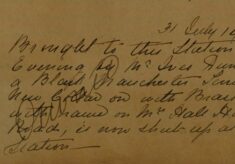 31 July 19
Brought to this Station
Evening by Mr
a Black Manchester
New on with
with name on Mr Hall
Road, is now shut up at
Station